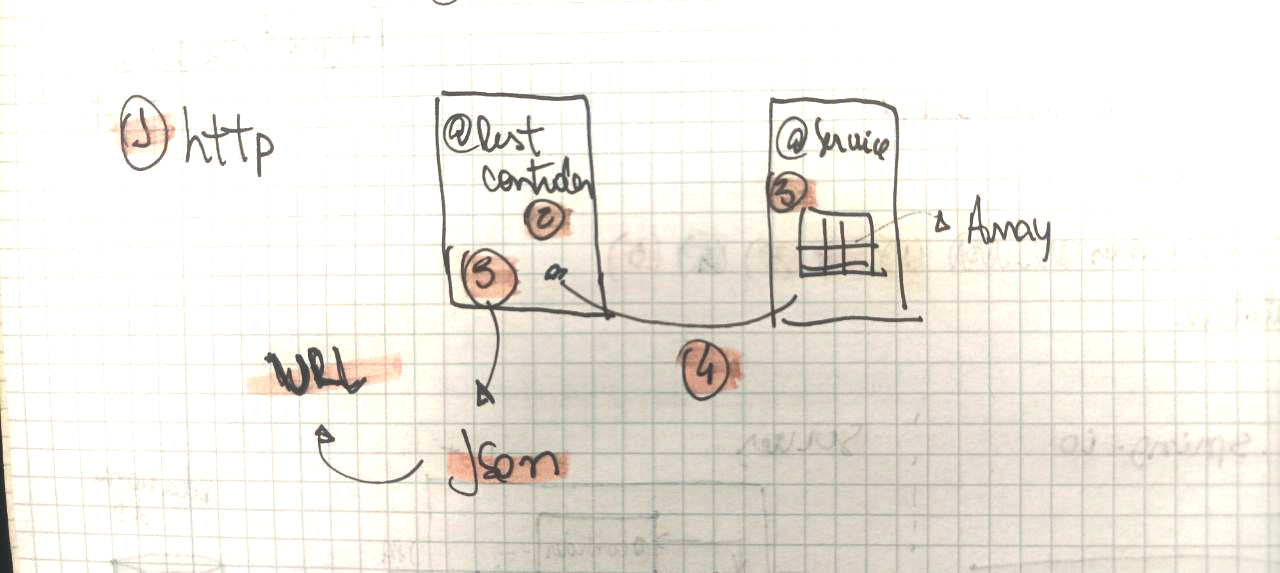 1 http
@Rest
controler
2
5
@Service
3
Array
4
URL
Json